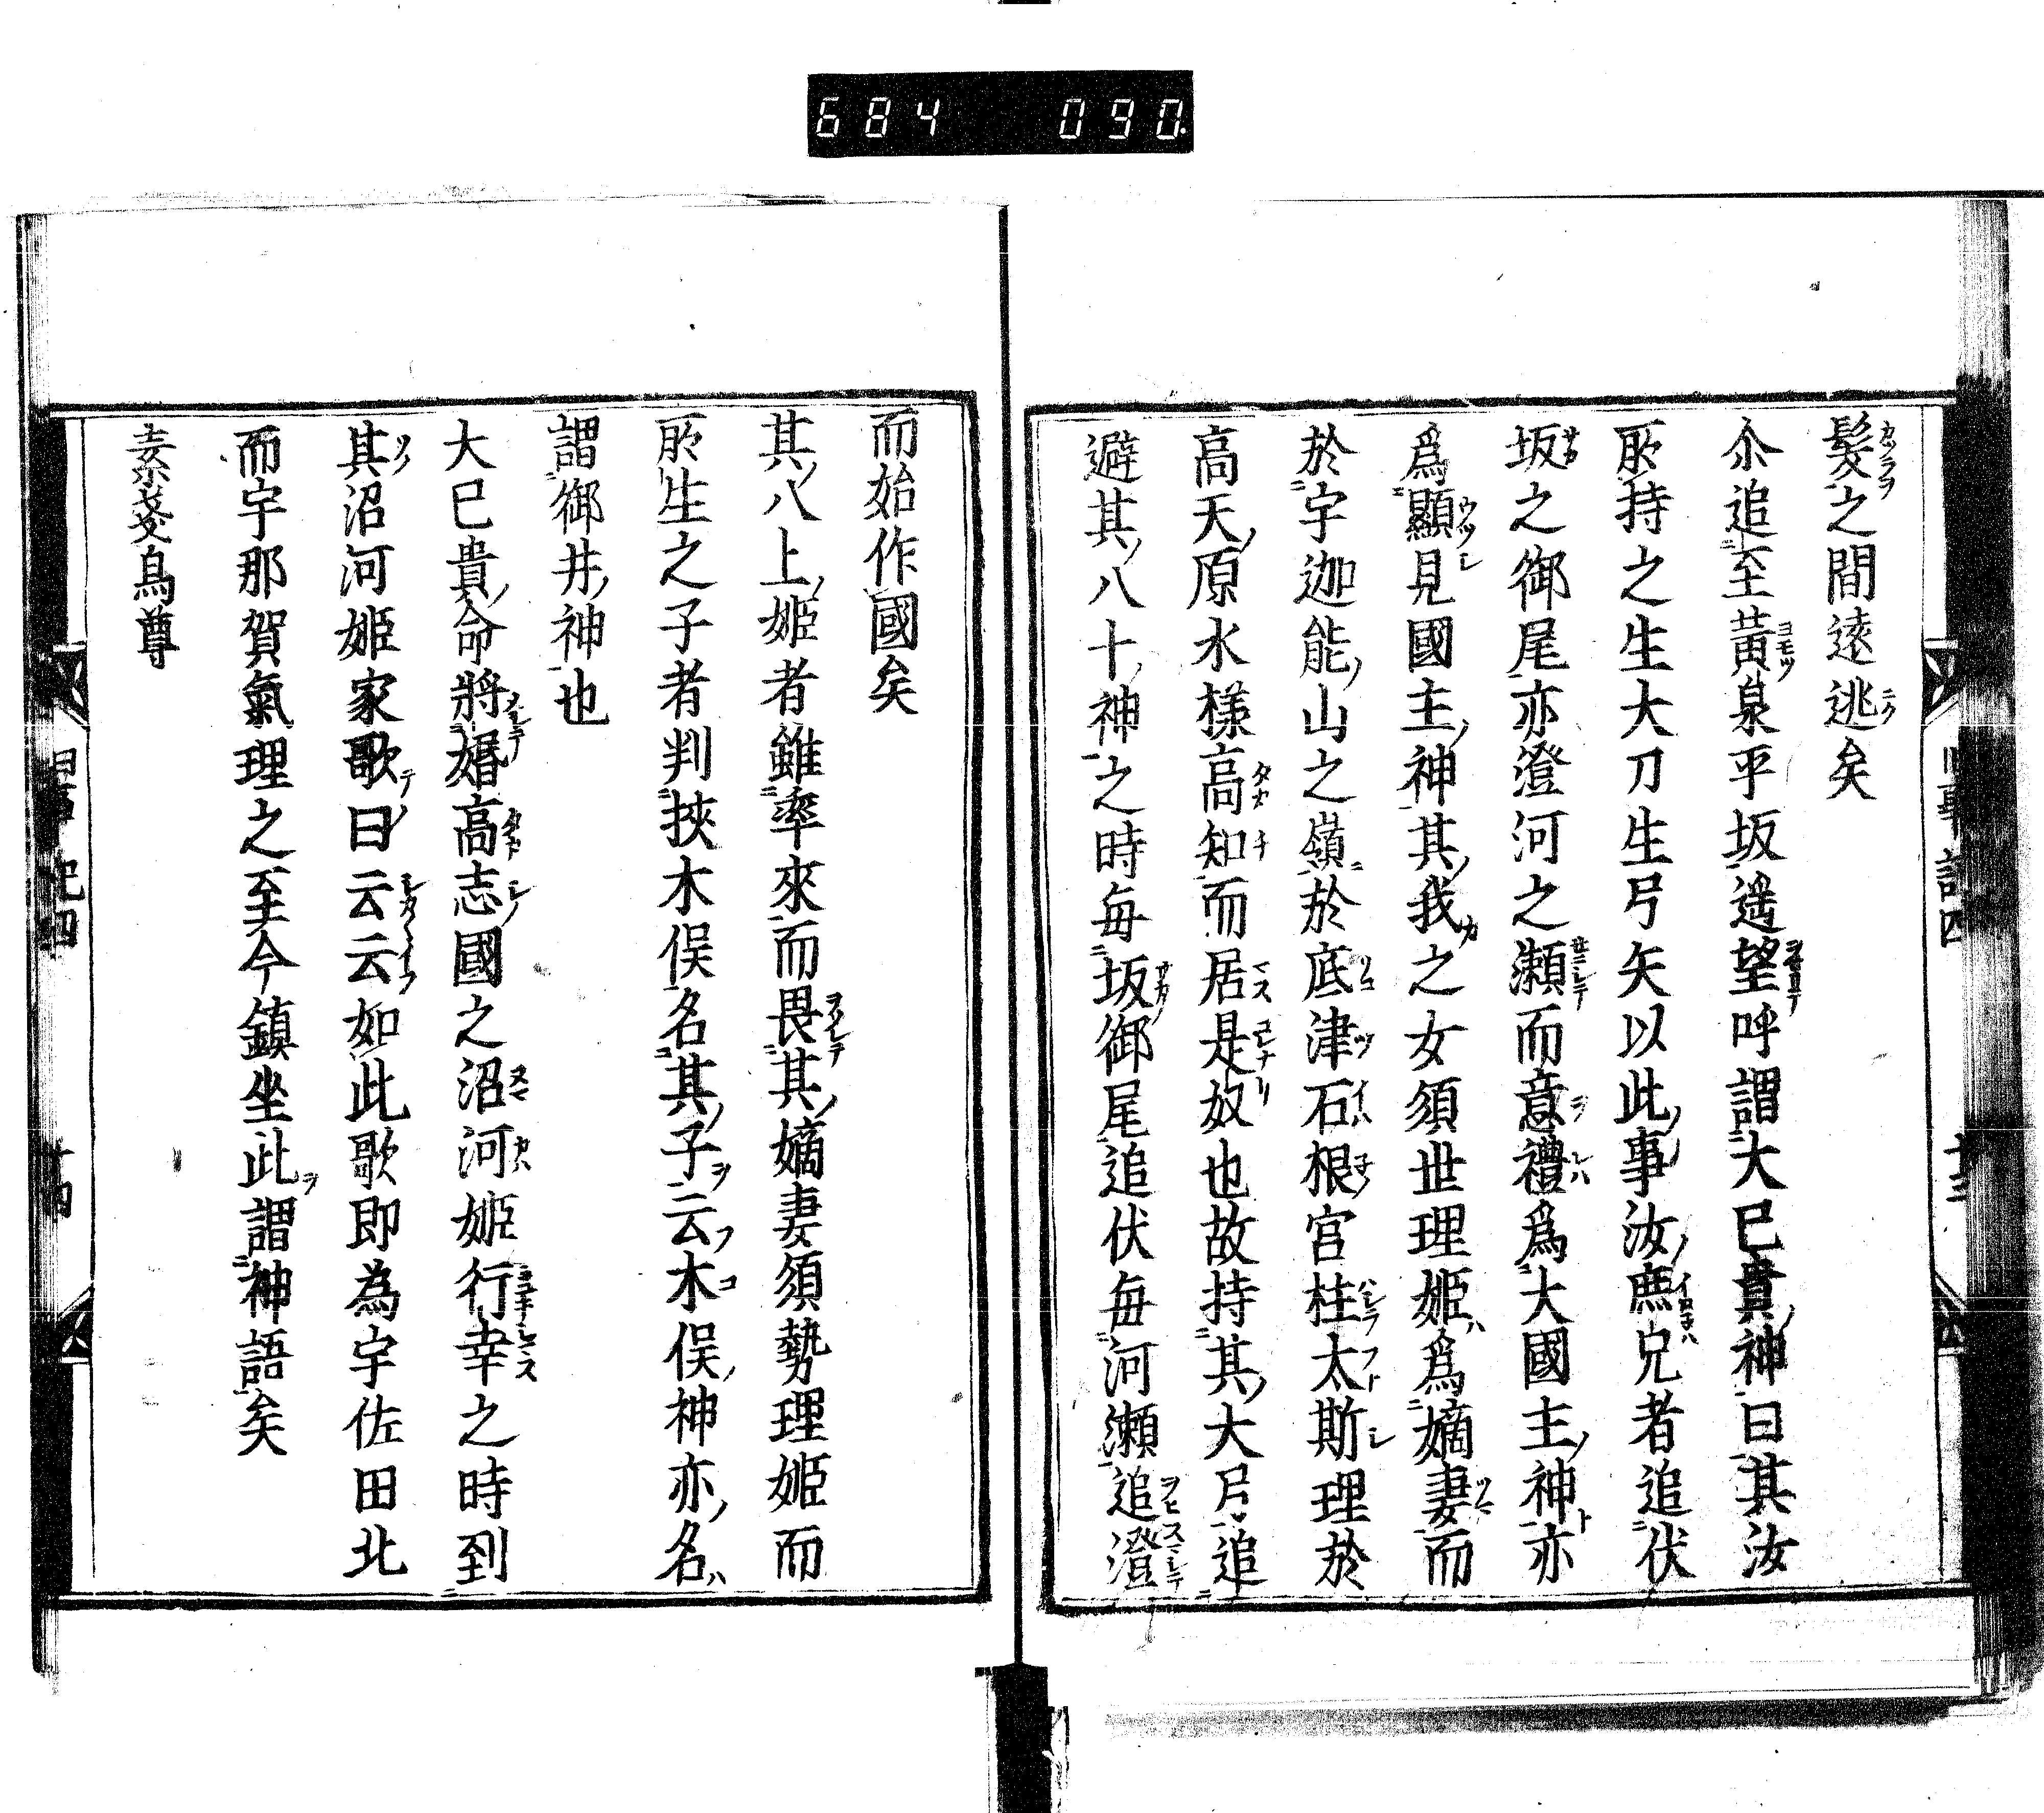 684 090
髮之間遠逃矣
尒追至黃泉平坂遥望呼謂大巳貴神曰其汝
所持之生大刀生弓矢以此事汝庶兄者追伏
坂之御尾亦澄河之瀬而意禮爲大國主神亦
爲顯見國主神其我之女須世理姬爲嫡妻而
於宇迦能山之嶺於底津石根宮柱太斯理於
高天原水様高知而居是奴也故持其大弓追
避其八十神之時每坂御尾追伏每河瀬追澄
而始作國矣
其八上姬者雖率來而畏其嫡妻須勢理姬而
所生之子者判挾木俣名其子云木俣神亦名
謂御井神也
大巳貴命將婚高志國之沼河姬行幸之時到
其沼河姬家歌曰云云如此歌即為宇佐田北
而宇那賀氣理之至今鎮坐此謂神語矣
素戔烏尊